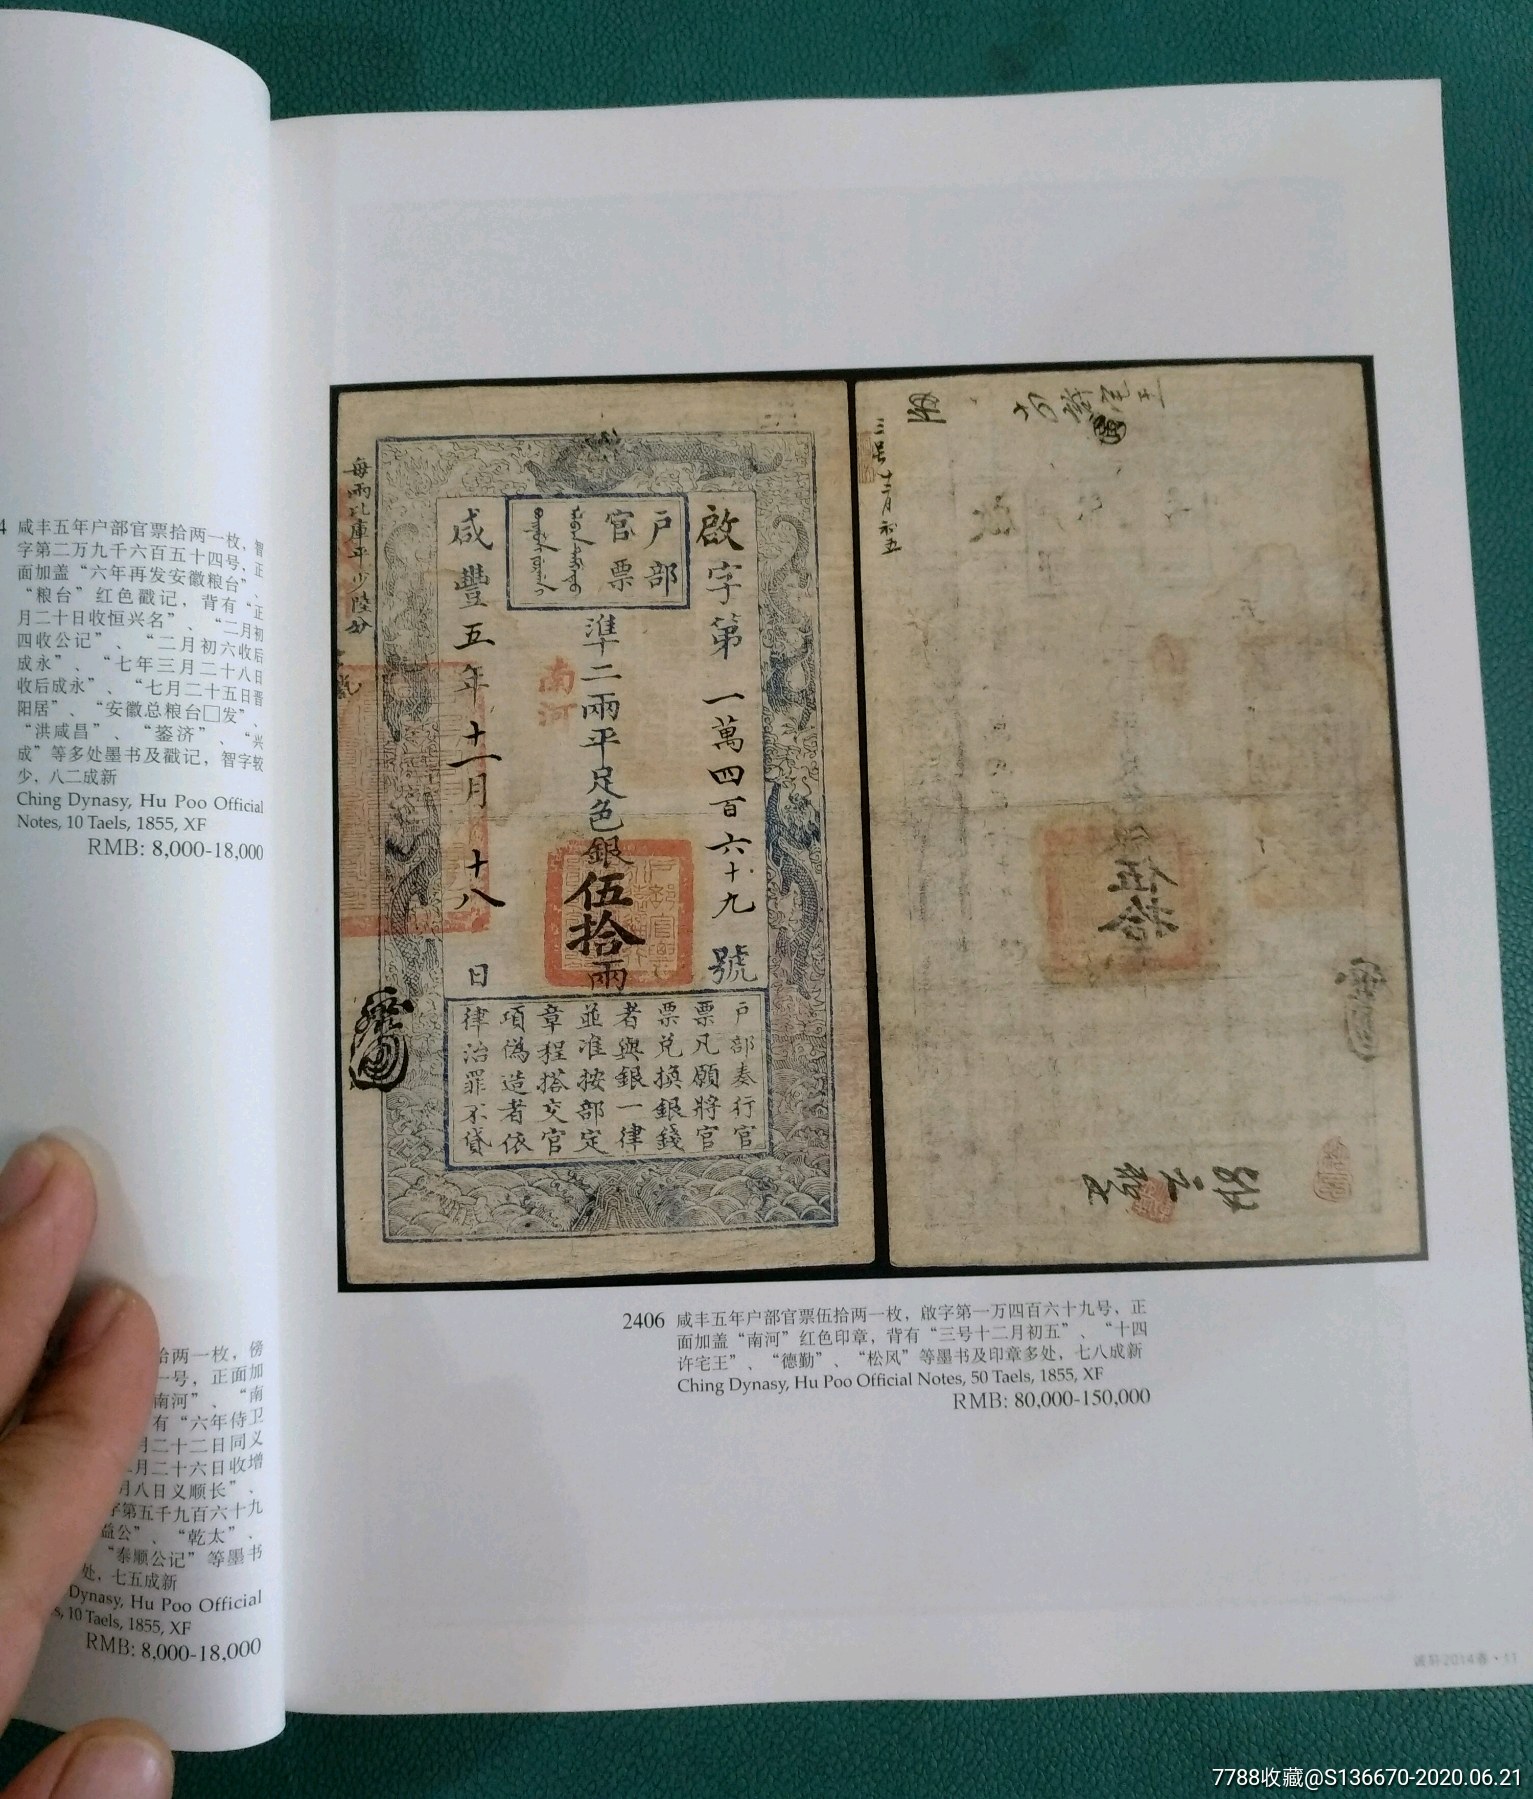 4 咸丰五年户部官票拾两一枚，智
字第二万九千六百五十四号，正
面加盖“六年再发安徽粮台”、
“粮台”红色戳记，背有“正
月二十日收恒兴名”、“二月初
四收公记”、“二月初六收后
成永”、“七年三月二十八日
收后成永”、“七月二十五日晋
阳居”、“安徽总粮台□发”、
“洪咸昌”、“蓥济”、“兴
成”等多处墨书及戳记，智字较
少，八二成新
Ching Dynasy, Hu Poo Official
Notes, 10 Taels, 1855, XF
RMB: 8,000-18,000
拾两一枚，傍
一号，正面加
南河”、“南
有“六年侍卫
月二十二日同义
二月二十六日收增
月八日义顺长”、
字第五千九百六十九
益公”、“乾太”、
“泰顺公记”等墨书
处，七五成新
Dynasy, Hu Poo Official
s, 10 Taels, 1855, XF
RMB: 8,000-18,000
啟字第一萬四百六十九號
户部
官票
準二兩平足色銀伍拾兩
南河
咸豐五年十一月十八日
每兩比庫平少陸分
户部奏行官
票凡願將官
票兑換銀錢
者與銀一律
並准按部定
章程搭交官
項偽造者依
律治罪不貸
三号十二月初五
伍拾
2406 咸丰五年户部官票伍拾两一枚，啟字第一万四百六十九号，正
面加盖“南河”红色印章，背有“三号十二月初五”、“十四
许宅王”、“德勤”、“松风”等墨书及印章多处，七八成新
Ching Dynasy, Hu Poo Official Notes, 50 Taels, 1855, XF
RMB: 80,000-150,000
诚轩2014春·11
7788收藏@S136670-2020.06.21